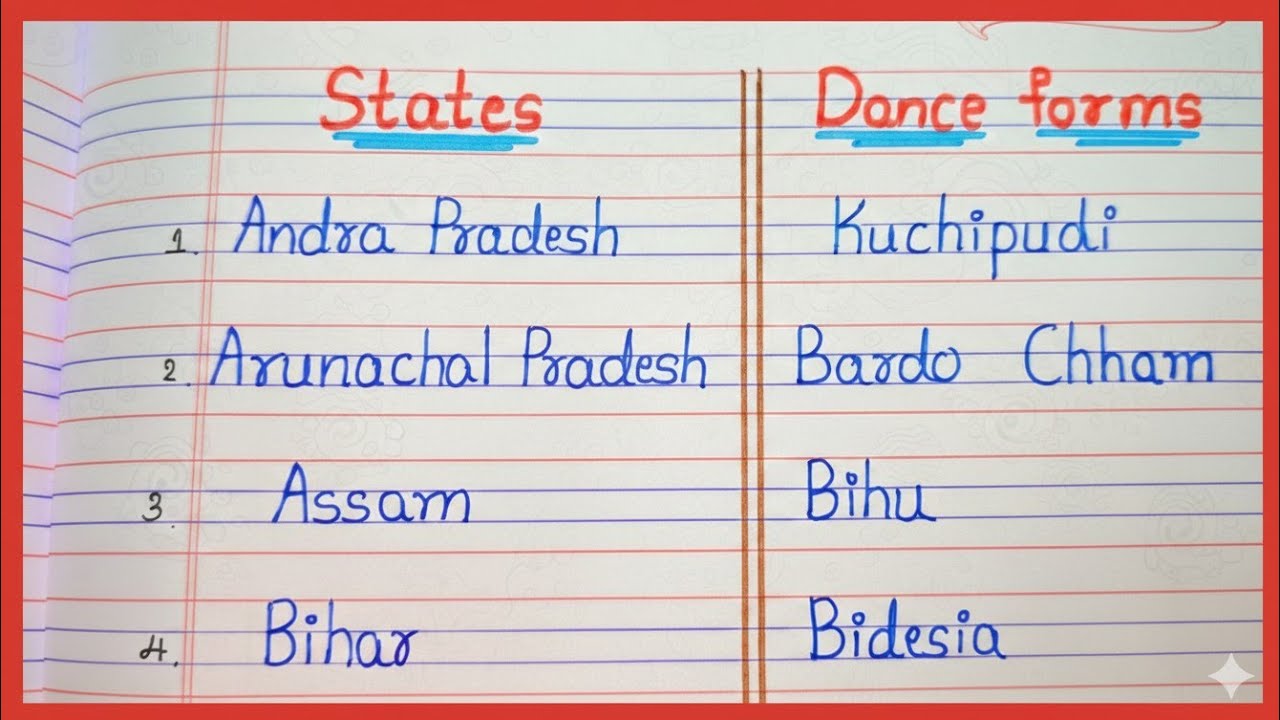 States Dance forms
1. Andra Pradesh Kuchipudi
2. Arunachal Pradesh Bardo Chham
3. Assam Bihu
4. Bihar Bidesia